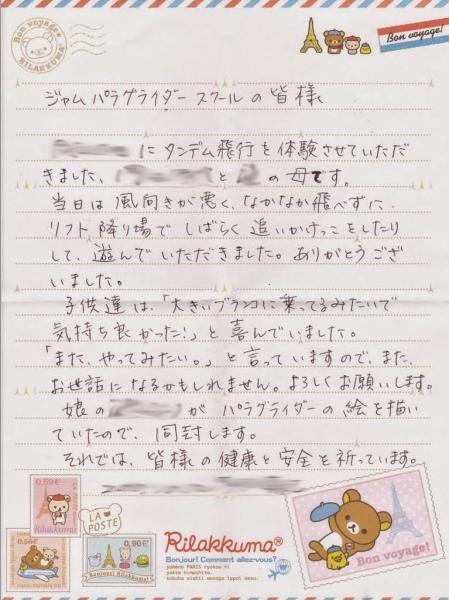 Bon voyage
RILAKKUMA
Bon voyage!
ジャム パラグライダー スクールの皆様
にタンデム飛行を体験させていただ
きました、と の母です。
当日は風向きが悪く、なかなか飛べずに、
リフト降り場でしばらく追いかけっこをしたり
して、遊んでいただきました。ありがとうござ
いました。
子供達は、「大きいブランコに乗ってるみたいで
気持ち良かった!」と喜んでいました。
「また、やってみたい。」と言っていますので、また、
お世話になるかもしれません。よろしくお願いします。
娘の が パラグライダーの絵を描い
ていたので、同封します。
それでは、皆様の健康と安全を祈っています。
0.59€
Rilakkuma
LA POSTE
0.56€
0.90€
Bonjour! Rilakkuma
Rilakkuma®
Bonjour! Comment allez-vous?
yumeno PARIS ryokou ni
Bon voyage!